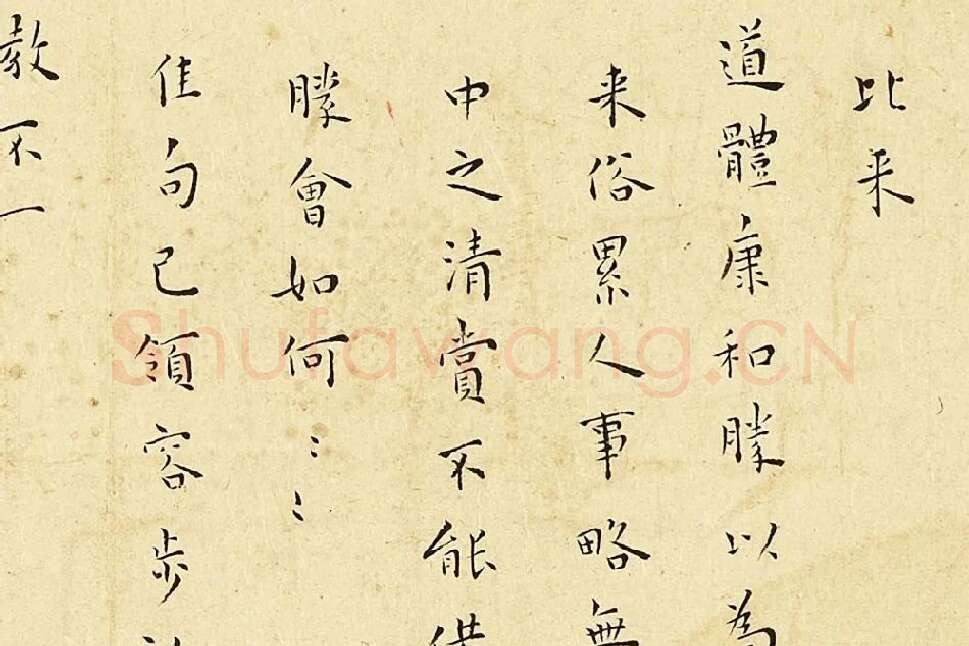 比来
道體康和勝以為
来俗累人事略無
中之清賞不能
勝會如何〻〻
佳句已領容步
教不一
Shufawang.CN